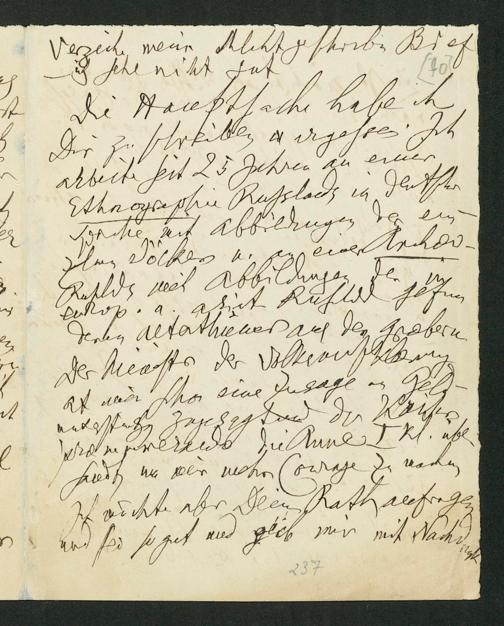 Verzeih mein schlecht geschriebn Brief
ich sehe nicht gut
[70]
Die Hauptsache habe ich
Dir zu schreiben vergessen. Ich
arbeite seit 25 Jahren an einer
Ethnographie Russlands in deutscher
Sprache mit Abbildungen der ein-
zelnen Völker u. an einer Archäo-
Russlds mit Abbildungen der im
europ. u. asiat Russld gefun
denen Alterthümer aus den Gräbern
Der Minister der Volksaufklärung
hat mir schon eine Zusage an Geld-
zugesagt und der Kaiser
die Anne I Kl.
um mir mehr Courage zu machen
Ich möchte aber Dein Rath anfragen
und sei so gut und gieb mir mit Nachd
237